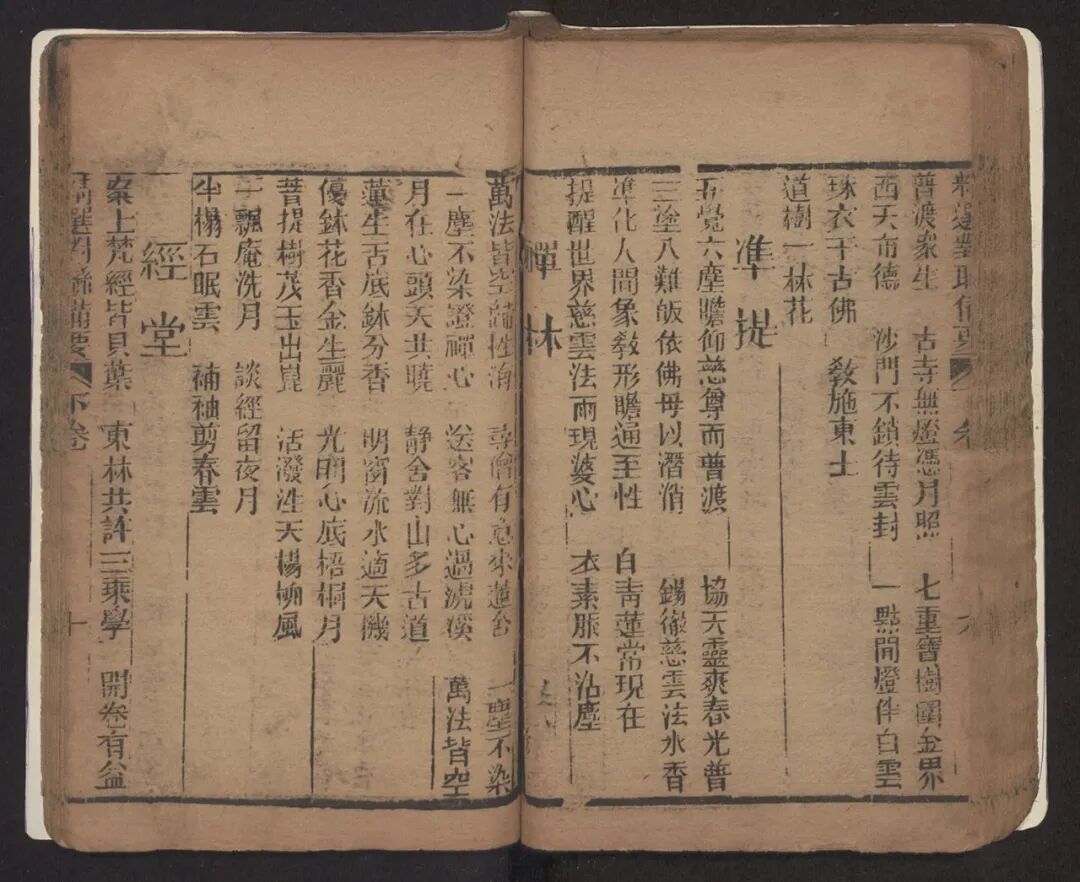 普渡眾生　古寺無燈憑月照　七重寶樹圍金界
西天布德　沙門不鎖待雲封　一點閒燈伴白雲
珠衣千古佛　敎施東土
道樹一林花
凖提
五覺六塵瞻仰慈尊而曹渡　協天靈爽春光普
三塗八難皈依佛母以潛消　錫徹慈雲法水香
凖化人間象敎形瞻通至性　白青蓮常現在
提醒世界慈雲法雨現婆心　衣素脤不沾塵
禪林
萬法皆空歸性海　尋僧有意來蓮舍　一塵不染
一塵不染證禪心　送客無心過濊溪　萬法皆空
月在心頭天共曉　靜舍對山多古道
蓮生舌底鉢分香　明窗流水適天機
優鉢花香金生麗　光明心底梧桐月
菩提樹茂玉出崑　活潑性天楊柳風
一瓢庵洗月　談經留夜月
半榻石眠雲　補衲剪春雲
經堂
案上梵經皆貝葉　東林共許三乘學　開卷有益
下卷